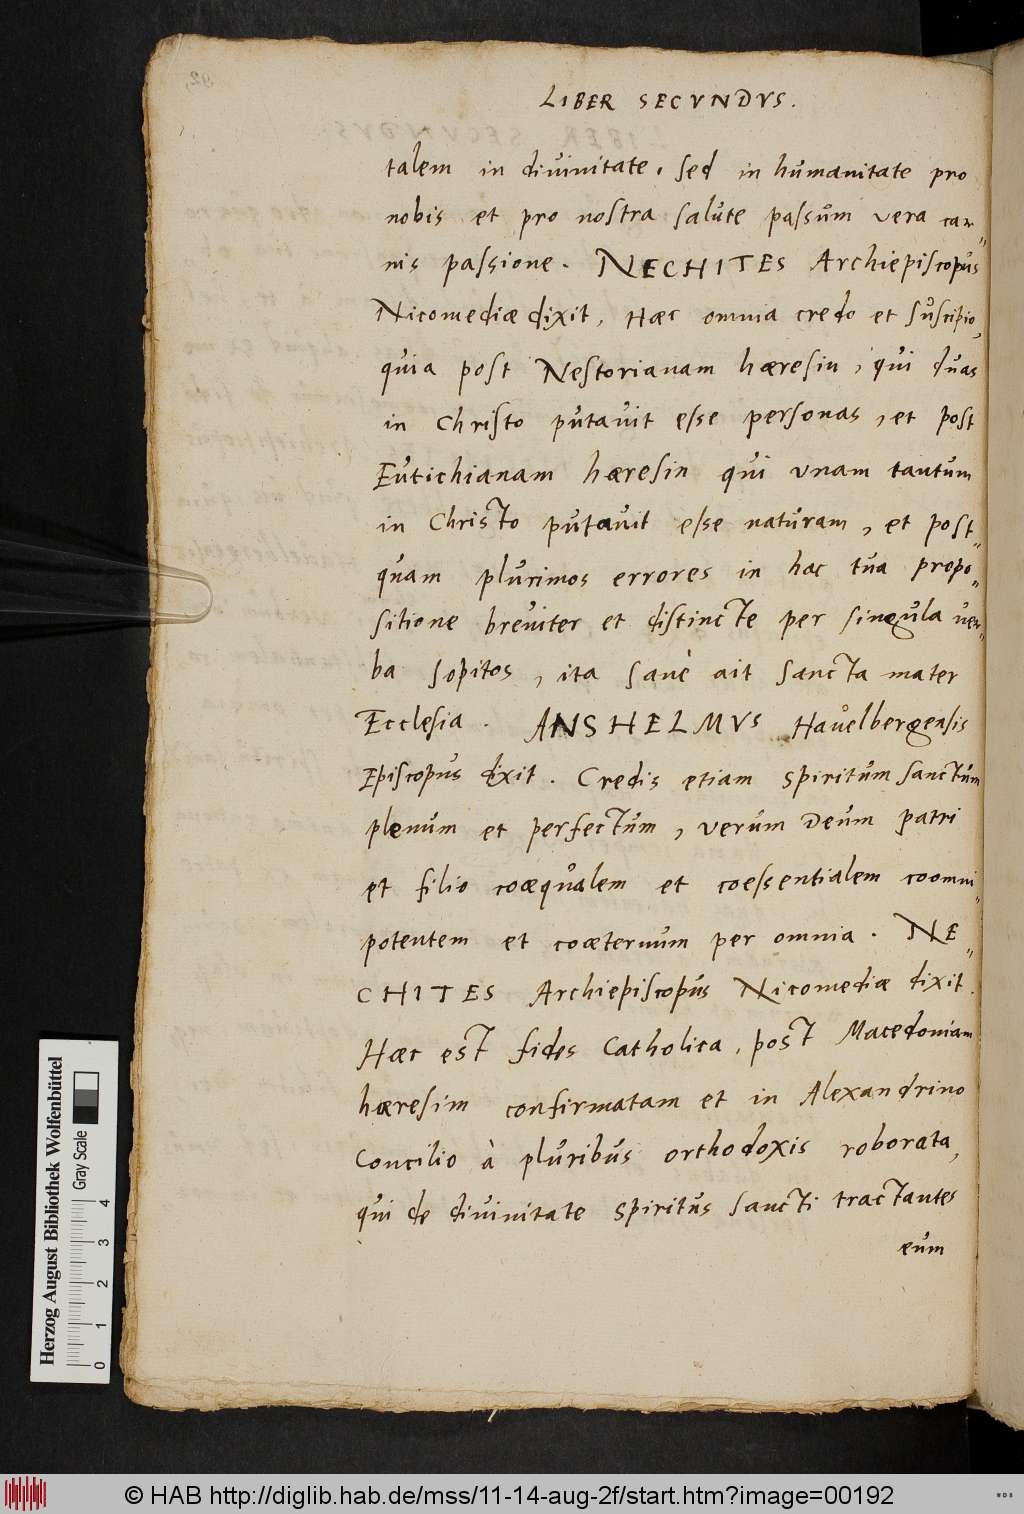 LIBER SECVNDVS.
talem in divinitate, sed in humanitate pro
nobis et pro nostra salute passum vera car„
nis passione. NECHITES Archiepiscopus
Nicomediæ dixit, Hæc omnia credo et suscipio,
quia post Nestorianam hæresin, qui duas
in Christo putavit esse personas, et post
Eutichianam hæresin qui vnam tantum
in Christo putavit esse naturam, et post„
quam plurimos errores in hac tua propo„
sitione breviter et distincte per singula ver„
ba sopitos, ita sanè ait sancta mater
Ecclesia. ANSHELMVS Havelbergensis
Episcopus dixit. Credis etiam spiritum sanctum
plenum et perfectum, verum Deum patri
et filio coæqualem et coessentialem coomni„
potentem et coæternum per omnia. NE„
CHITES Archiepiscopus Nicomediæ dixit.
Hæc est fides Catholica, post Macedoniam
hæresim confirmatam et in Alexandrino
Concilio à pluribus orthodoxis roborata,
qui de divinitate spiritus sancti tractantes
eum
92,
Herzog August Bibliothek Wolfenbüttel
Gray Scale
0 1 2 3 4
© HAB http://diglib.hab.de/mss/11-14-aug-2f/start.htm?image=00192